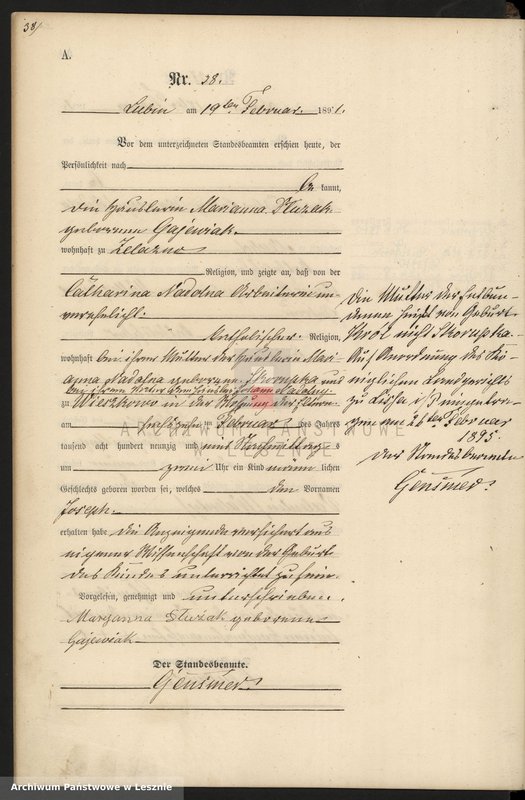 38/
A.
Nr. 38.
Lubin am 19ten Februar 1891.
Vor dem unterzeichneten Standesbeamten erschien heute, der
Persönlichkeit nach
be kannt,
die Häuslerin Marianna Sluzak
geborene Gajewiak
wohnhaft zu Zelazno
Religion, und zeigte an, daß von der
Catharina Nadolna Arbeiterin un-
verehelicht
katholischer Religion,
wohnhaft bei ihrer Mutter der Häuslerin Mari-
anna Nadolna geborene Skorupka und
bei ihrem Vater dem Häusler Nadolny
zu Wieszkowo in der Wohnung der Eltern
am Februar des Jahres
tausend acht hundert neunzig und eins Vormittags
um zwei Uhr ein Kind männ lichen
Geschlechts geboren worden sei, welches den Vornamen
Joseph
erhalten habe die Anzeigende versichert aus
eigener Wissenschaft von der Geburt
des Kindes unterrichtet zu sein.
Vorgelesen, genehmigt und unterschrieben.
Maryanna Sluzak geborene
Gajewiak
Der Standesbeamte.
Gensmer
Die Mutter der Entbun-
denen heißt von Geburt
Kroll nicht Skorupka.
Auf Anordnung des Kö-
niglichen Landgerichts
zu Lissa i. P. eingetra-
gen am 26ten Februar
1895.
Der Standesbeamte
Gensmer
ARCHIWUM PAŃSTWOWE
W LESZNIE
Archiwum Państwowe w Lesznie